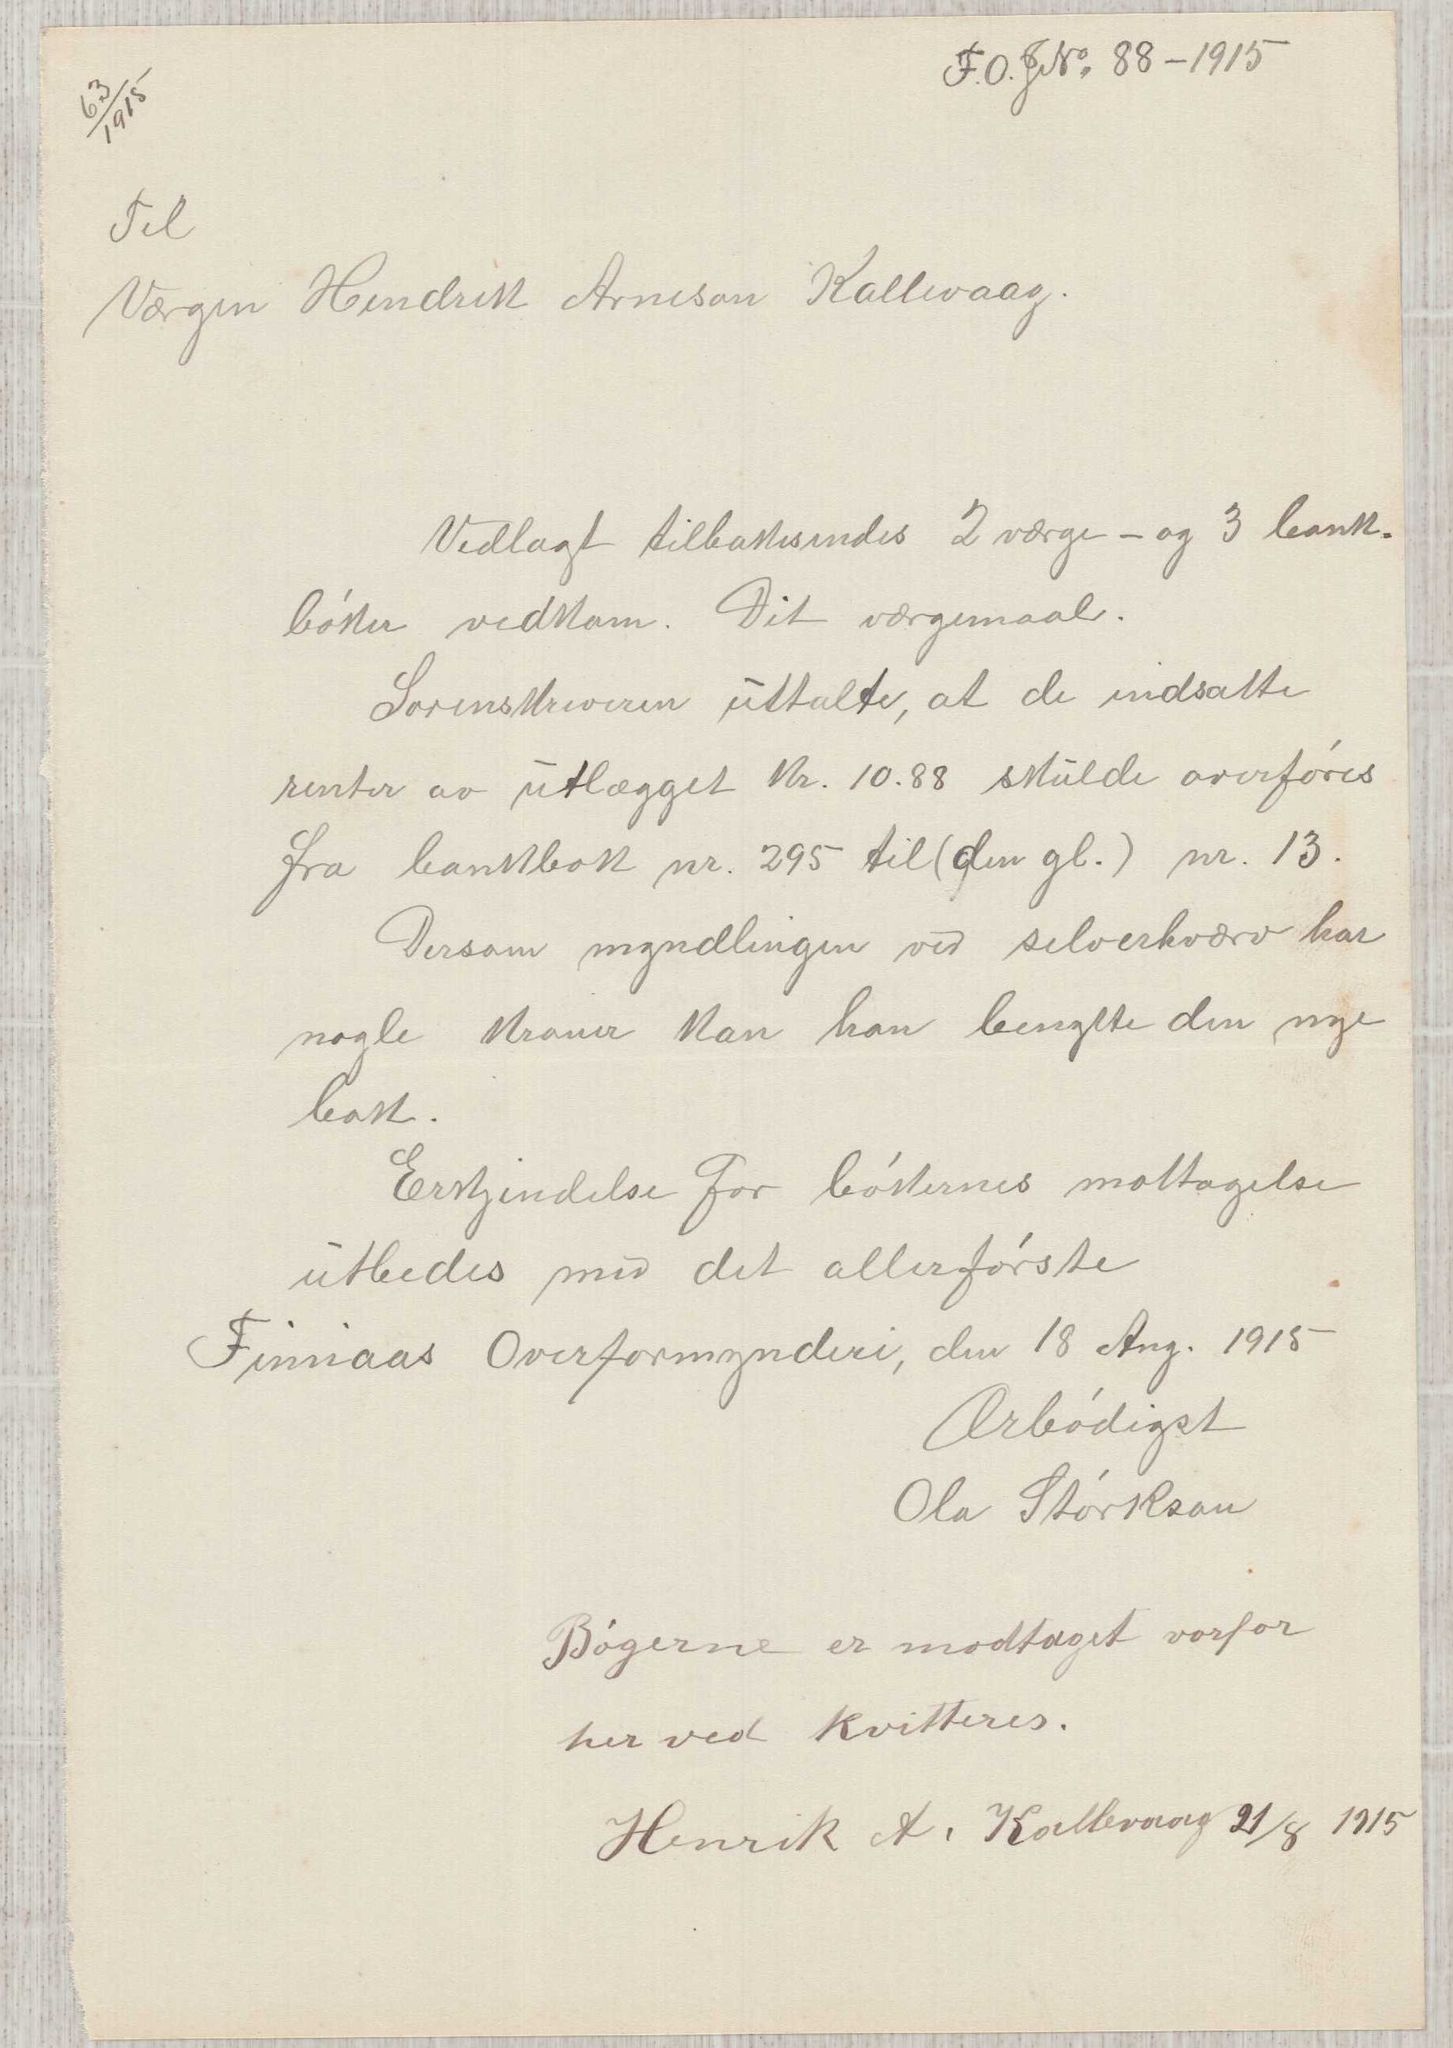 F.O.J.No. 88-1915
63/1915
Til
Værgen Hendrik Arneson Kallevaag.
Vedlagt tilbakesendes 2 værge- og 3 bank-
bóker vedkom. Dit værgemaal.
Sorenskriveren uttalte, at de indsatte
renter av utlægget kr. 10.88 skulde overfóres
fra bankbok nr. 295 til (den gl.) nr. 13.
Dersom myndlingen ved selverhværv har
nogle kroner kan han benytte den nye
bok.
Erkjendelse for bókernes mottagelse
utbedes med det allerfórste
Finnaas Overformynderi, den 18 Aug. 1915
Ærbódigst
Ola Stórkson
Bógerne er modtaget vorfor
her ved kvitteres.
Henrik A. Kallevaag 21/8 1915